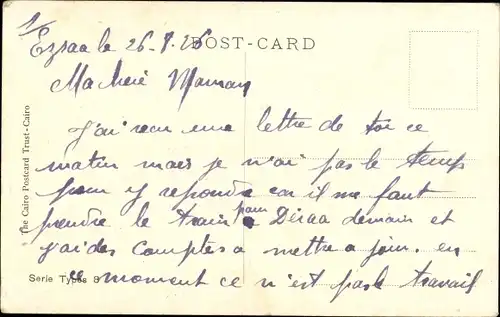 1/
Ezraa le 26-8-26
POST-CARD
Ma chere Maman
J'ai recu une lettre de toi ce
matin mais je n'ai pas le temps
pour y repondre car il me faut
prendre le train pour Deraa demain et
j'ai des comptes a mettre a jour. en
ce moment ce n'est pas le travail
Serie Types 8
The Cairo Postcard Trust-Cairo